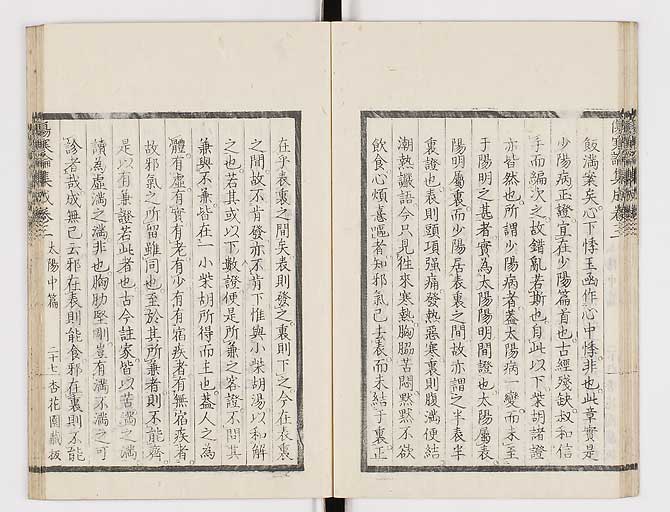 傷寒論集成卷三
飲滿案矣心下悸玉函作心中悸非也此章實是
少陽病正證宜在少陽篇首也古經殘缺叔和信
手而編次之故錯亂若斯也自此以下柴胡諸證
亦皆然也所謂少陽病者蓋太陽病一變而未至
于陽明之甚者實為太陽陽明間證也太陽屬表
陽明屬裏而少陽居表裏之間故亦謂之半表半
裏證也表則頭項强痛發熱惡寒裏則腹滿便結
潮熱譫語今只見往來寒熱胸脇苦悶黙黙不欲
飲食心煩喜嘔者知邪氣已去表而未結于裏正
在乎表裏之間矣表則發之裏則下之今在表裏
之間故不肯發亦不肯下惟與小柴胡湯以和解
之也若其或以下數證便是所兼之客證不問其
兼與不兼皆在一小柴胡所得而主也蓋人之為
體有虛有實有老有少有有宿疾者有無宿疾者
故邪氣之所留雖同也至於其所兼者則不能齊
是以有兼證若此者也古今註家皆以苦滿之滿
讀為虛滿之滿非也胸肋堅剛豈有滿不滿之可
診者哉成無已云邪在表則能食邪在裏則不能
傷寒論集成卷三 太陽中篇 二十七 杏花園藏板